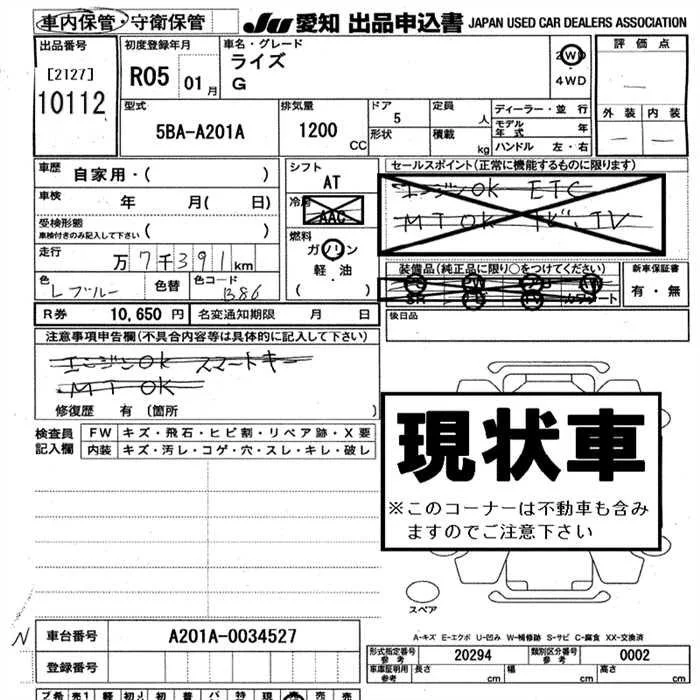 車内保管・守衛保管 JU 愛知 出品申込書 JAPAN USED CAR DEALERS ASSOCIATION
出品番号 初度登録年月 車名・グレード 評価点
[2127] R05 01月 ライズ 2WD
10112 G 4WD
型式 排気量 ドア 定員 ディーラー・並行 外装 内装
5BA-A201A 1200 CC 5 人 モデル年式 年
形状 積載 kg ハンドル 左・右
車歴 自家用・( ) シフト セールスポイント(正常に機能するものに限ります)
AT
車検 年 月( 日) 冷房 エンジンOK ETC
AAC MTOK TV
受検形態 ( )
車検付きのみ記入して下さい
走行 万7千391km 燃料 ガソリン 装備品(純正品に限り○をつけてください) 新車保証書
軽・油 有・無
色 ブルー 色替 色コード B86 ( )
R券 10,650円 名変通知期限 月 日 後日品
注意事項申告欄(不具合内容等は具体的に記入して下さい)
エンジンOK スマートキー
MTOK
修復歴 有 〔箇所 〕
現状車
検査員 FW キズ・飛石・ヒビ割・リペア跡・X要
記入欄 内装 キズ・汚レ・コゲ・穴・スレ・キレ・破レ
※このコーナーは不動車も含み
ますのでご注意下さい
スペア
A-キズ E-エクボ U-凹み W-補修跡 S-サビ C-腐食 XX-交換済
N 車台番号 A201A-0034527 形式指定番号 参考 20294 類別区分番号 参考 0002
登録番号 車庫証明 参考 長さ cm 幅 cm 高さ cm